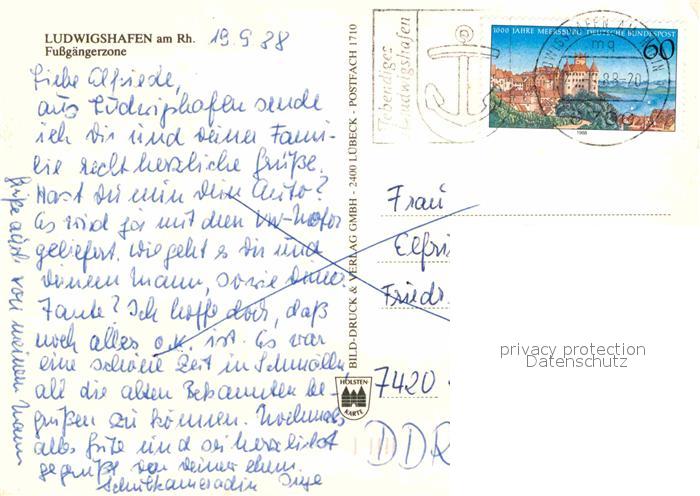 LUDWIGSHAFEN am Rh.
Fußgängerzone
19.9.88
Liebe Elfriede,
aus Ludwigshafen sende
ich Dir und deiner Fami-
lie recht herzliche Grüße.
Hast Du nun Dein Auto?
Es wird ja mit dem VW-Motor
geliefert. Wie geht es Dir und
deinem Mann, sowie deiner
Tante? Ich hoffe doch, daß
noch alles o.k. ist. Es war
eine schöne Zeit in Schmölln,
all die alten Bekannten be-
grüßen zu können. Nochmals
alles Gute und sei herzlichst
gegrüßt von deiner ehem.
Schulkameradin Inge
Grüße auch von meinem Mann
BILD-DRUCK & VERLAG GMBH - 2400 LÜBECK - POSTFACH 1710
HOLSTEN
KARTE
Lebendiges
Ludwigshafen
1000 JAHRE MEERSBURG DEUTSCHE BUNDESPOST
60
1988
LUDWIGSHAFEN AM RHEIN
mq
.8.8-20
Frau
Elfri
Friedr.
7420
DDR
privacy protection
Datenschutz